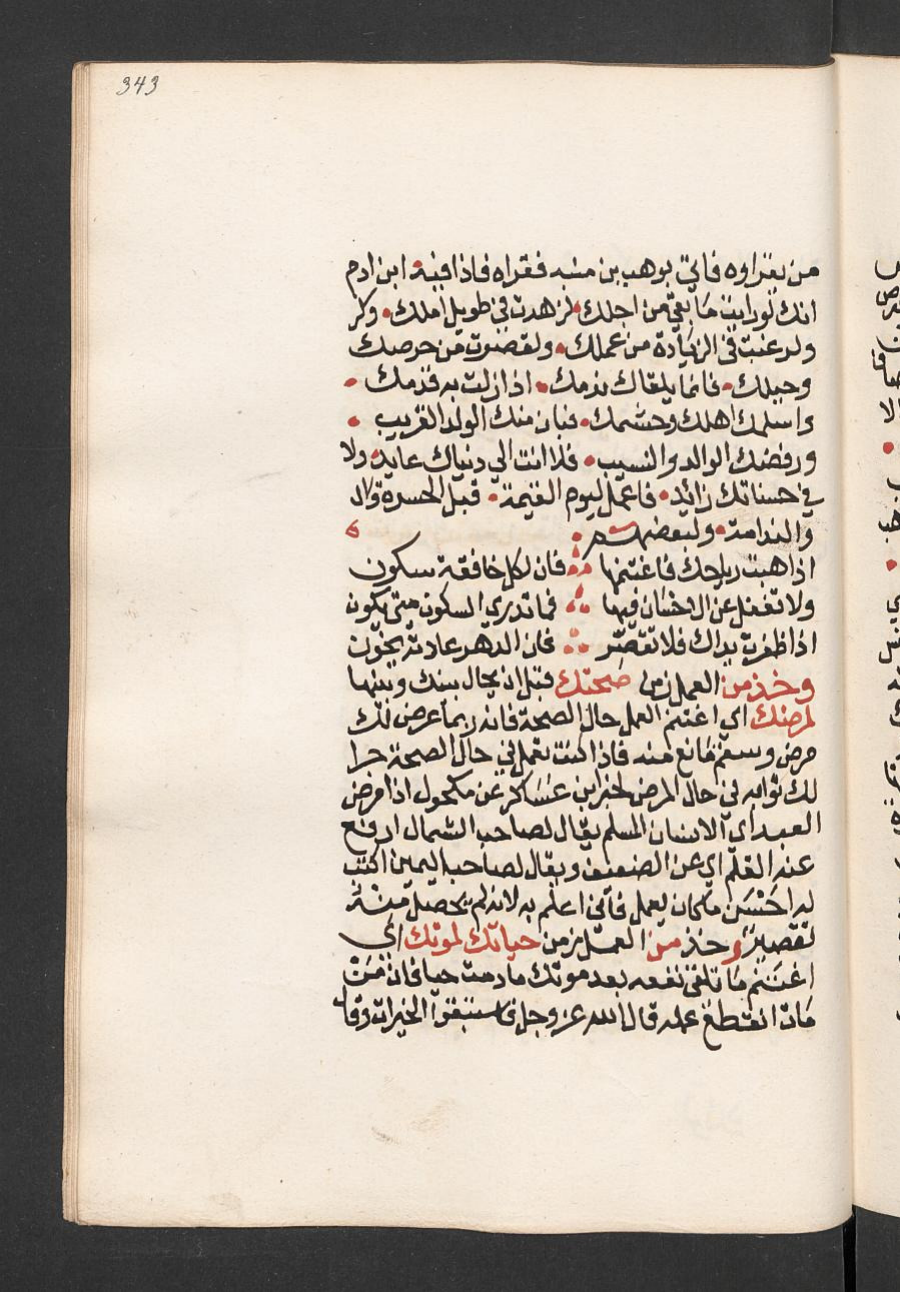 343
من يقراوه فاتى بوهب بن منبه فقراه فاذا فيه ابن ادم
انك لو رايت ما بقي من اجلك لزهدت في طويل املك وكر
ولرغبت في الزيادة من عملك ولقصرت من حرصك
وحيلك فانما يلقاك ندمك اذا زلت به قدمك
واسلمك اهلك وحشمك فبان منك الولد القريب
ورفضك الوالد والنسيب فلا انت الي دنياك عايد ولا
في حسناتك زائد فاعمل ليوم القيمة قبل الحسرة
والندامة ولبعضهم
اذا هبت رياحك فاغتنمها فان لكل خافقة سكون
ولا تغفل عن الاحسان فيها فما تدري السكون متى يكون
اذا ظفرت يداك فلا تقصر فان الدهر عادته يخون
وخذ من العمل زمن صحتك قبل ان يحال بينك وبينها
لمرضك اي اغتنم العمل حال الصحة فانه ربما عرض لك
مرض وسقم مانع منه فاذا كنت تعمل في حال الصحة جرا
لك ثوابه في حال المرض لخبر ابن عساكر عن مكحول اذا مرض
العبد اي الانسان المسلم يقال لصاحب الشمال ارفع
عنه القلم اي عن الضعيف ويقال لصاحب اليمين اكتب
له احسن مكان يعمل فاني اعلم به لانه لم يحصل منه
تقصير وخذ من العمل زمن حياتك لموتك اي
اغتنم ما تلقى نفعه بعد موتك ما دمت حيا فان من
مات انقطع عمله قال الله عز وجل فاستبقوا الخيرات وقا